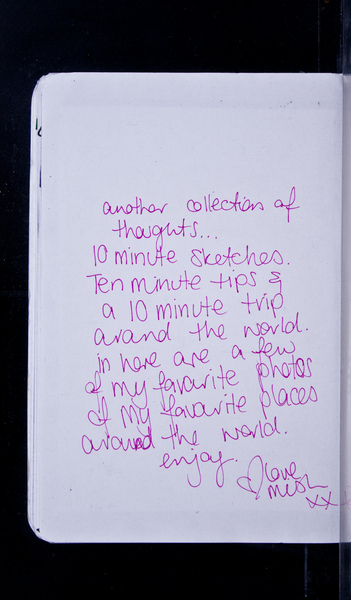 another collection of
thoughts...
10 minute sketches.
Ten minute tips &
a 10 minute trip
around the world.
in here are a few
of my favourite photos
of my favourite places
around the world.
enjoy.
love
xx